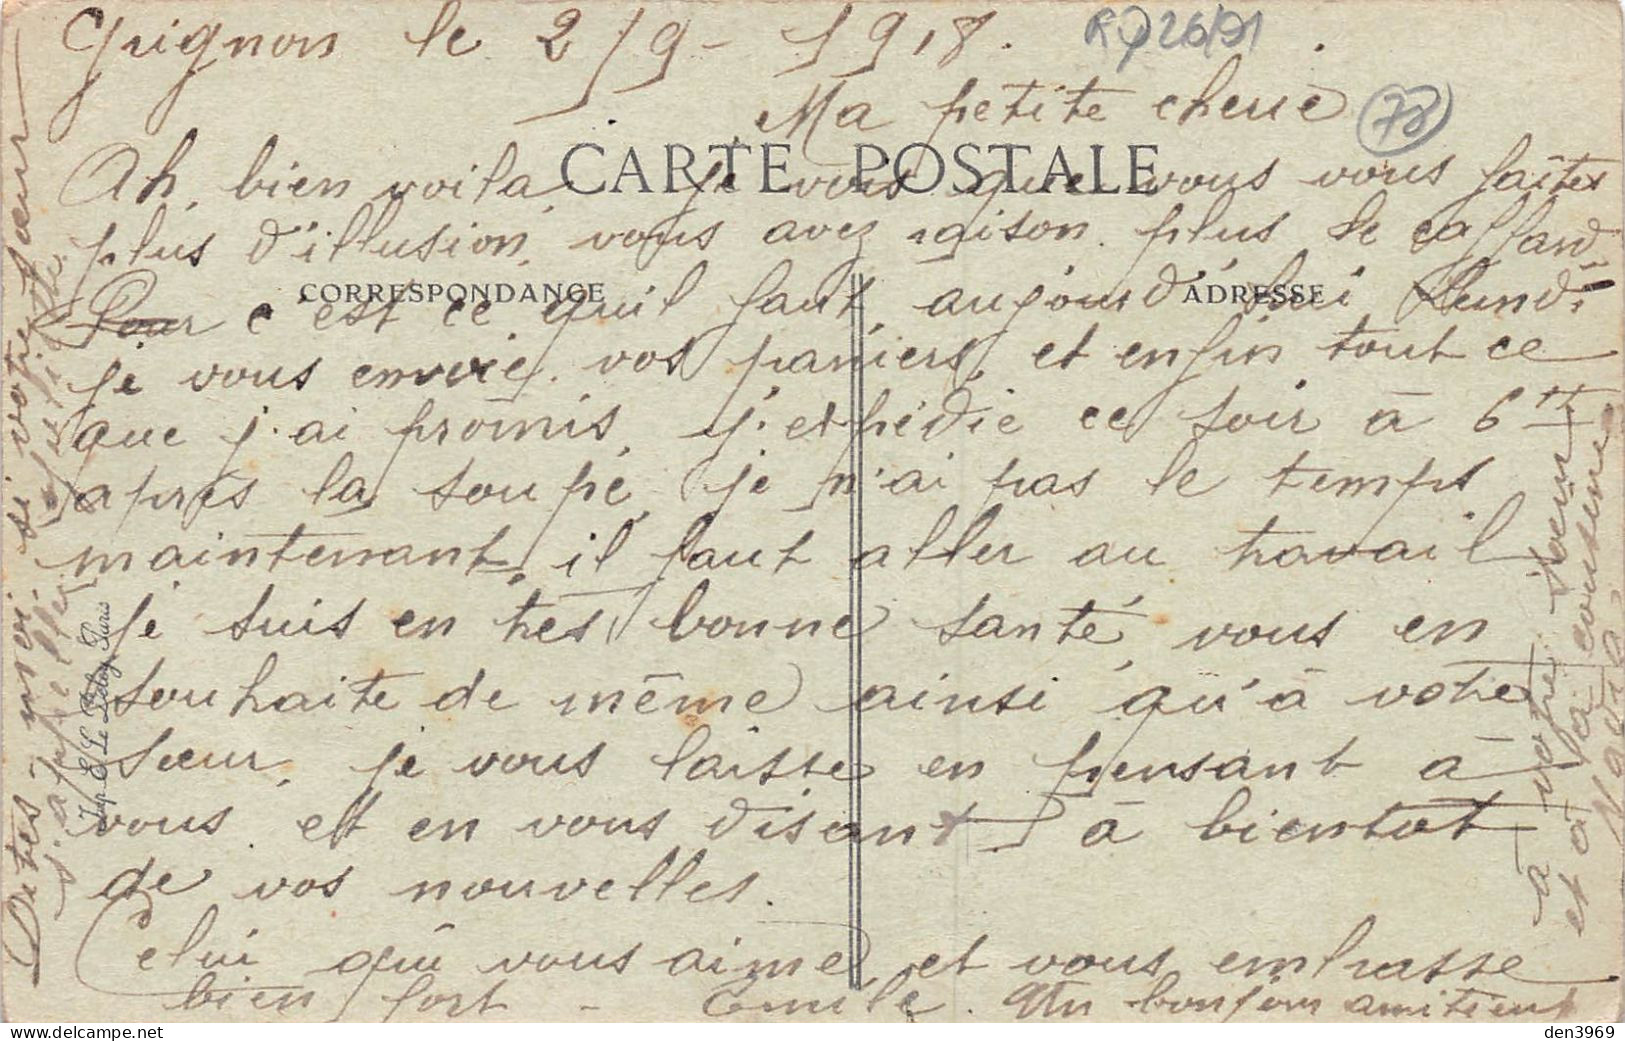 Grignon le 2/9 - 1918.
RQ 26/91
Ma petite cherie
78
CARTE POSTALE
Ah, bien voila, je vois que vous vous faîtes
plus d'illusion, vous avez raison. plus de caffard,
CORRESPONDANCE
ADRESSE
Pour c'est ce qu'il faut, aujourd'hui Lundi
je vous envoie, vos paniers, et enfin tout ce
que j'ai promis, j'expédie ce soir à 6 hres
après la soupe, je n'ai pas le temps
maintenant, il faut aller au travail
je suis en très bonne santé, vous en
souhaite de même ainsi qu'à votre
sœur, je vous laisse en pensant à
vous et en vous disant à bientôt
de vos nouvelles.
Celui qui vous aime, et vous embrasse
bien fort - Emile. Un bonjour amitieux
à votre sœur
et à la cousine
Dites-moi, si votre sœur
s'appelle
Imp. E. Le Deley, Paris
den3969